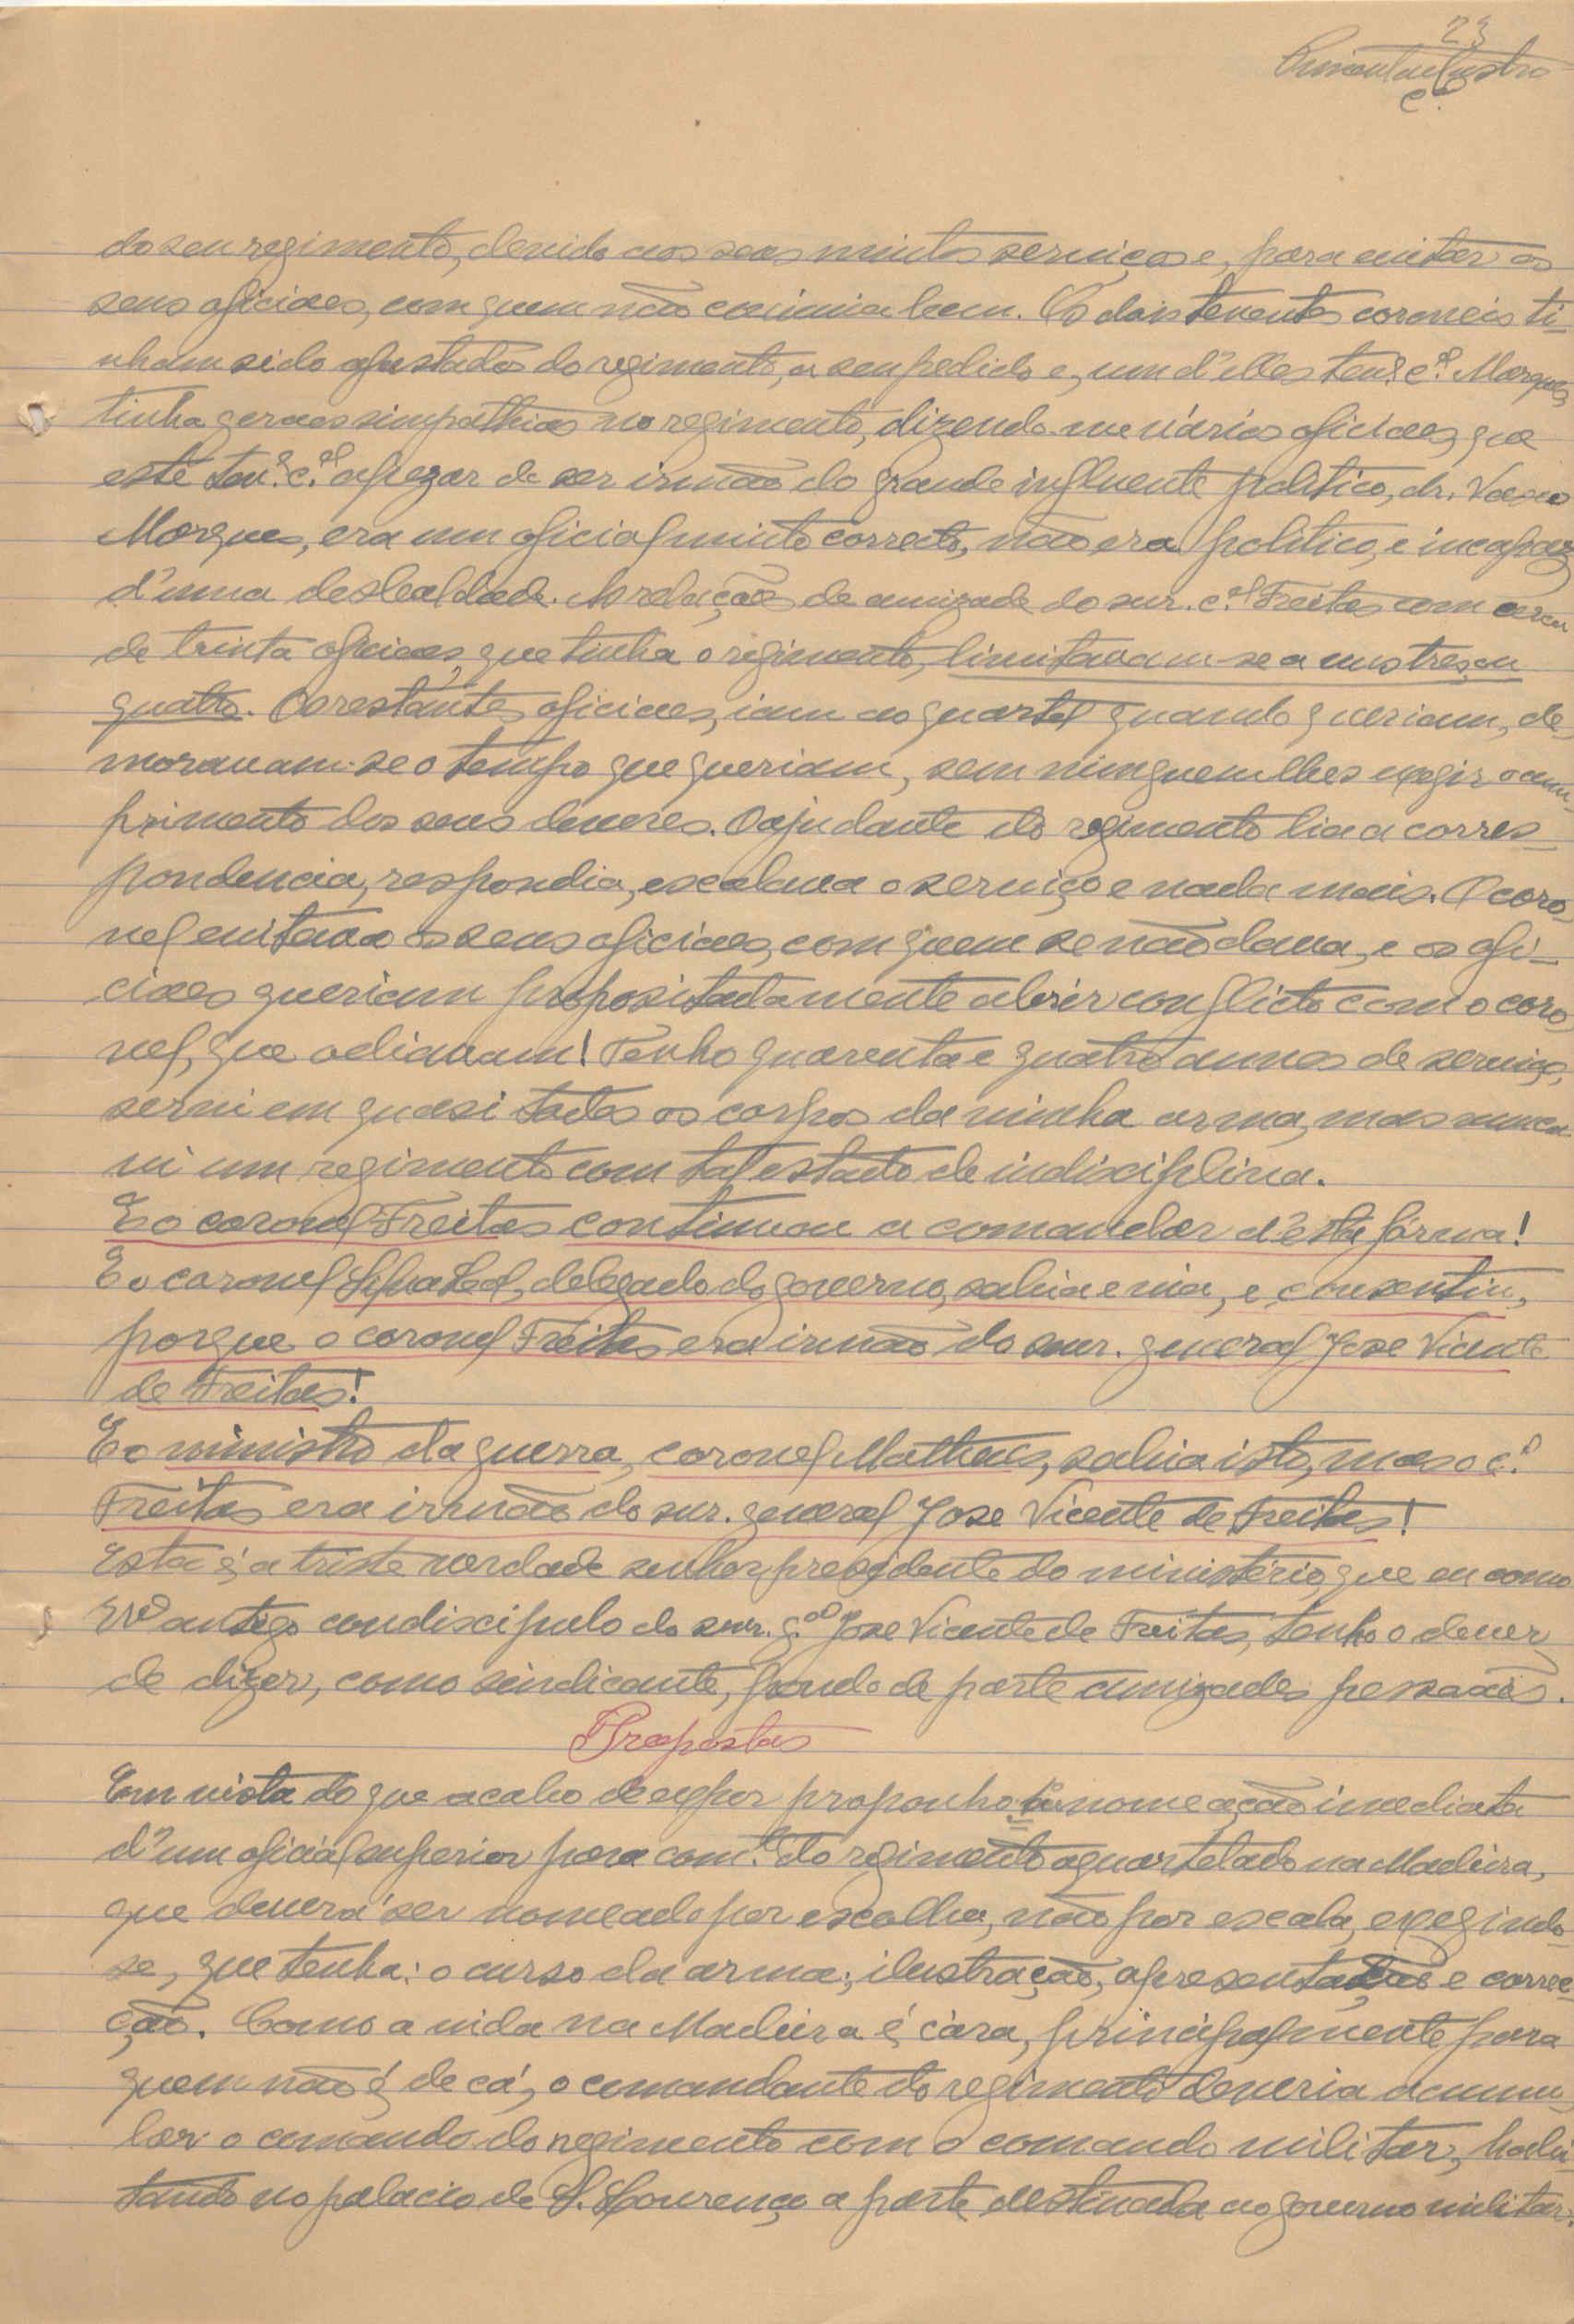 23
Pimenta de Castro
C.el
do seu regimento, devido aos seus muitos serviços e, para evitar os
seus oficiaes, com quem não convivia bem. Os dois tenentes coroneis ti-
nham sido afastados do regimento, a seu pedido e, um d'elles ten.e c.el Marques,
tinha geraes simpathias no regimento, dizendo-me vários oficiaes, que
este ten.e c.el apezar de ser irmão do grande influente politico, dr. Vasco
Marques, era um oficial muito correcto, não era politico, e incapaz
d'uma deslealdade. As relações de amizade do snr. c.el Freitas com cerca
de trinta oficiaes, que tinha o regimento, limitavam-se a uns tres, ou
quatro. Os restantes oficiaes, iam ao quartel quando queriam, de-
moravam-se o tempo que queriam, sem ninguem lhes exegir o cum-
primento dos seus deveres. O ajudante do regimento lia a corres-
pondencia, respondia, escalava o serviço e nada mais. O coro-
nel evitava os seus oficiaes, com quem se não dava, e os ofi-
ciaes queriam propositadamente abrir conflicto com o coro-
nel, que odiavam! Tenho quarenta e quatro annos de serviço,
servi em quasi todos os corpos da minha arma, mas nunca
vi um regimento com tal estado de indisciplina.
E o coronel Freitas continuou a comandar d'esta fórma!
E o coronel Silva Leal, delegado do governo, sabia e via, e, consentiu,
porque o coronel Freitas era irmão do snr. general Jose Vicente
de Freitas!
E o ministro da guerra, coronel Matheus, sabia isto, mas o c.el
Freitas era irmão do snr. general Jose Vicente de Freitas!
Esta é a triste verdade senhor presidente do ministério, que eu como
antigo condiscipulo do snr. g.al Jose Vicente de Freitas, tenho o dever
de dizer, como sindicante, pondo de parte amizades pessoaes.
Propostas
Em vista do que acabo de expor proponho: nomeação imediata
d'um oficial superior para com.te do regimento aquartelado na Madeira,
que deverá ser nomeado por escolha, não por escala, exegindo-
se, que tenha: o curso da arma; ilustração, apresentação e correc-
ção. Como a vida na Madeira é cára, principalmente para
quem não é de cá, o comandante do regimento deveria acumu-
lar o comando do regimento com o comando militar, habi-
tando no palacio de S. Lourenço a parte destinada ao governo militar.